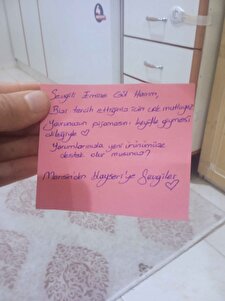 Sevgili Emine Gül Hanım,
Bizi tercih ettiğiniz için çok mutluyuz
Yavrunuzun pijamasını keyifle giymesi
dileğiyle ♡
Yorumlarınızla yeni ürünümüze
destek olur musunuz?
Mersin'den Kayseri'ye Sevgiler ♡